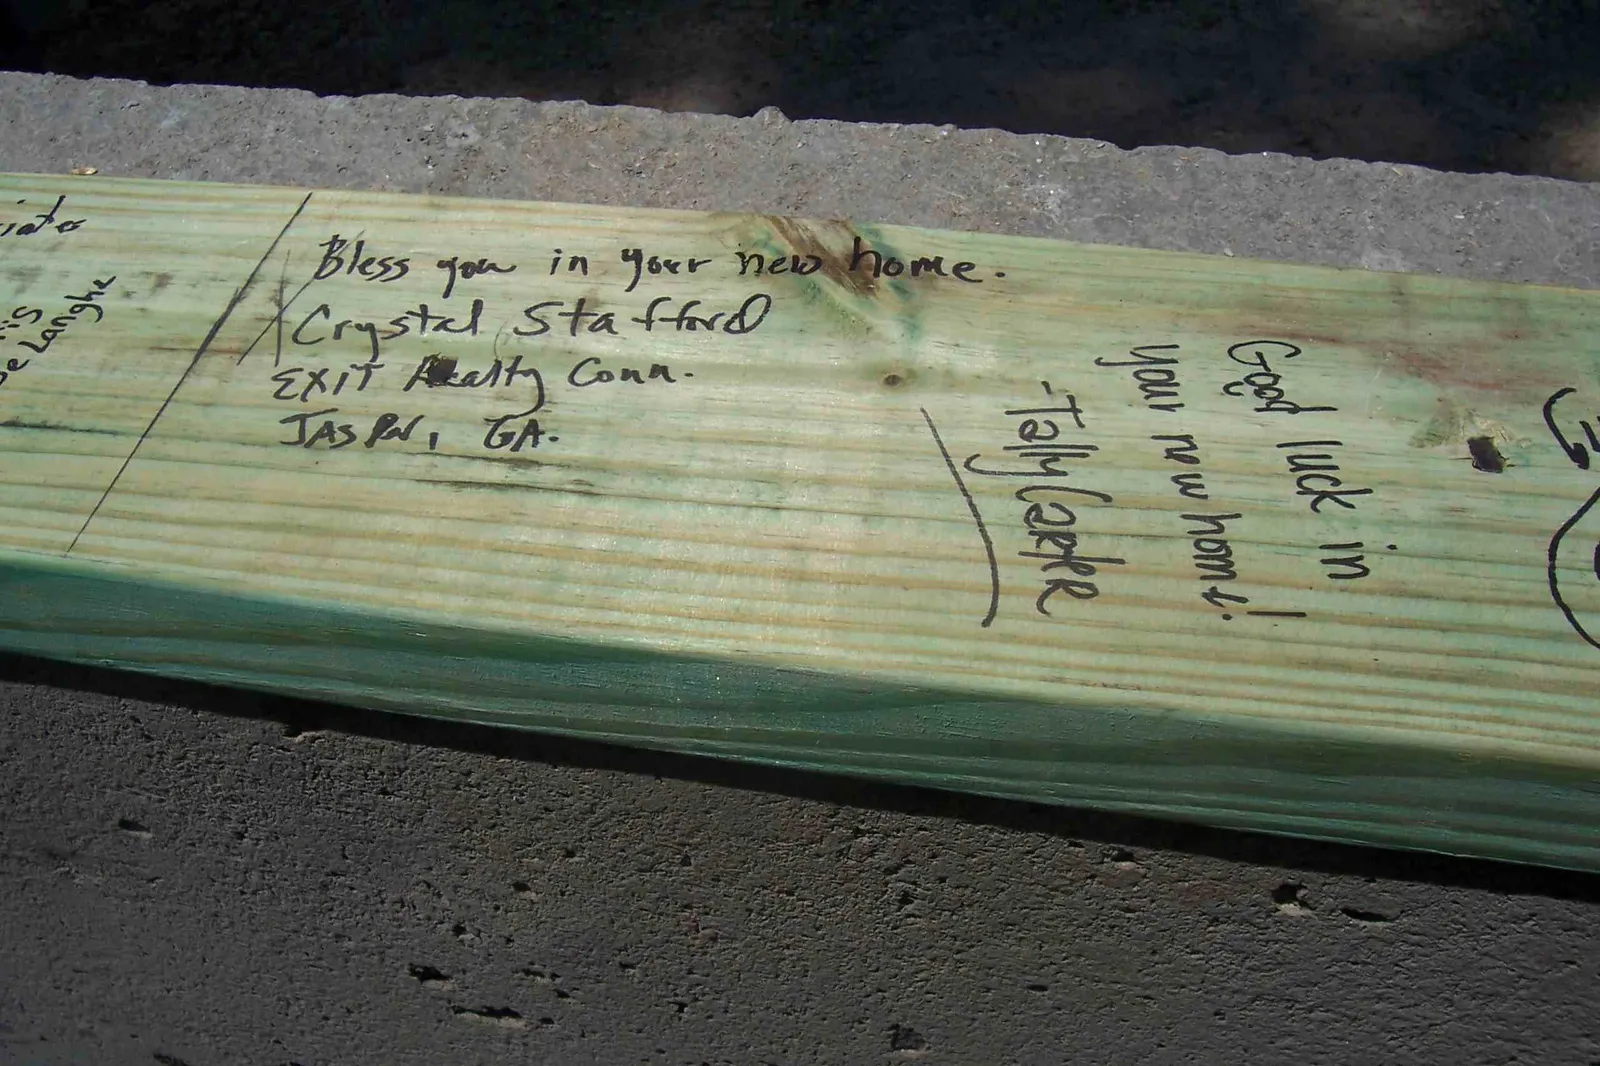 Bless you in your new home.
Crystal Stafford
EXIT Realty Conn.
JASPER, GA.
Good luck in
your new home!
-Tally Carke
Langhe